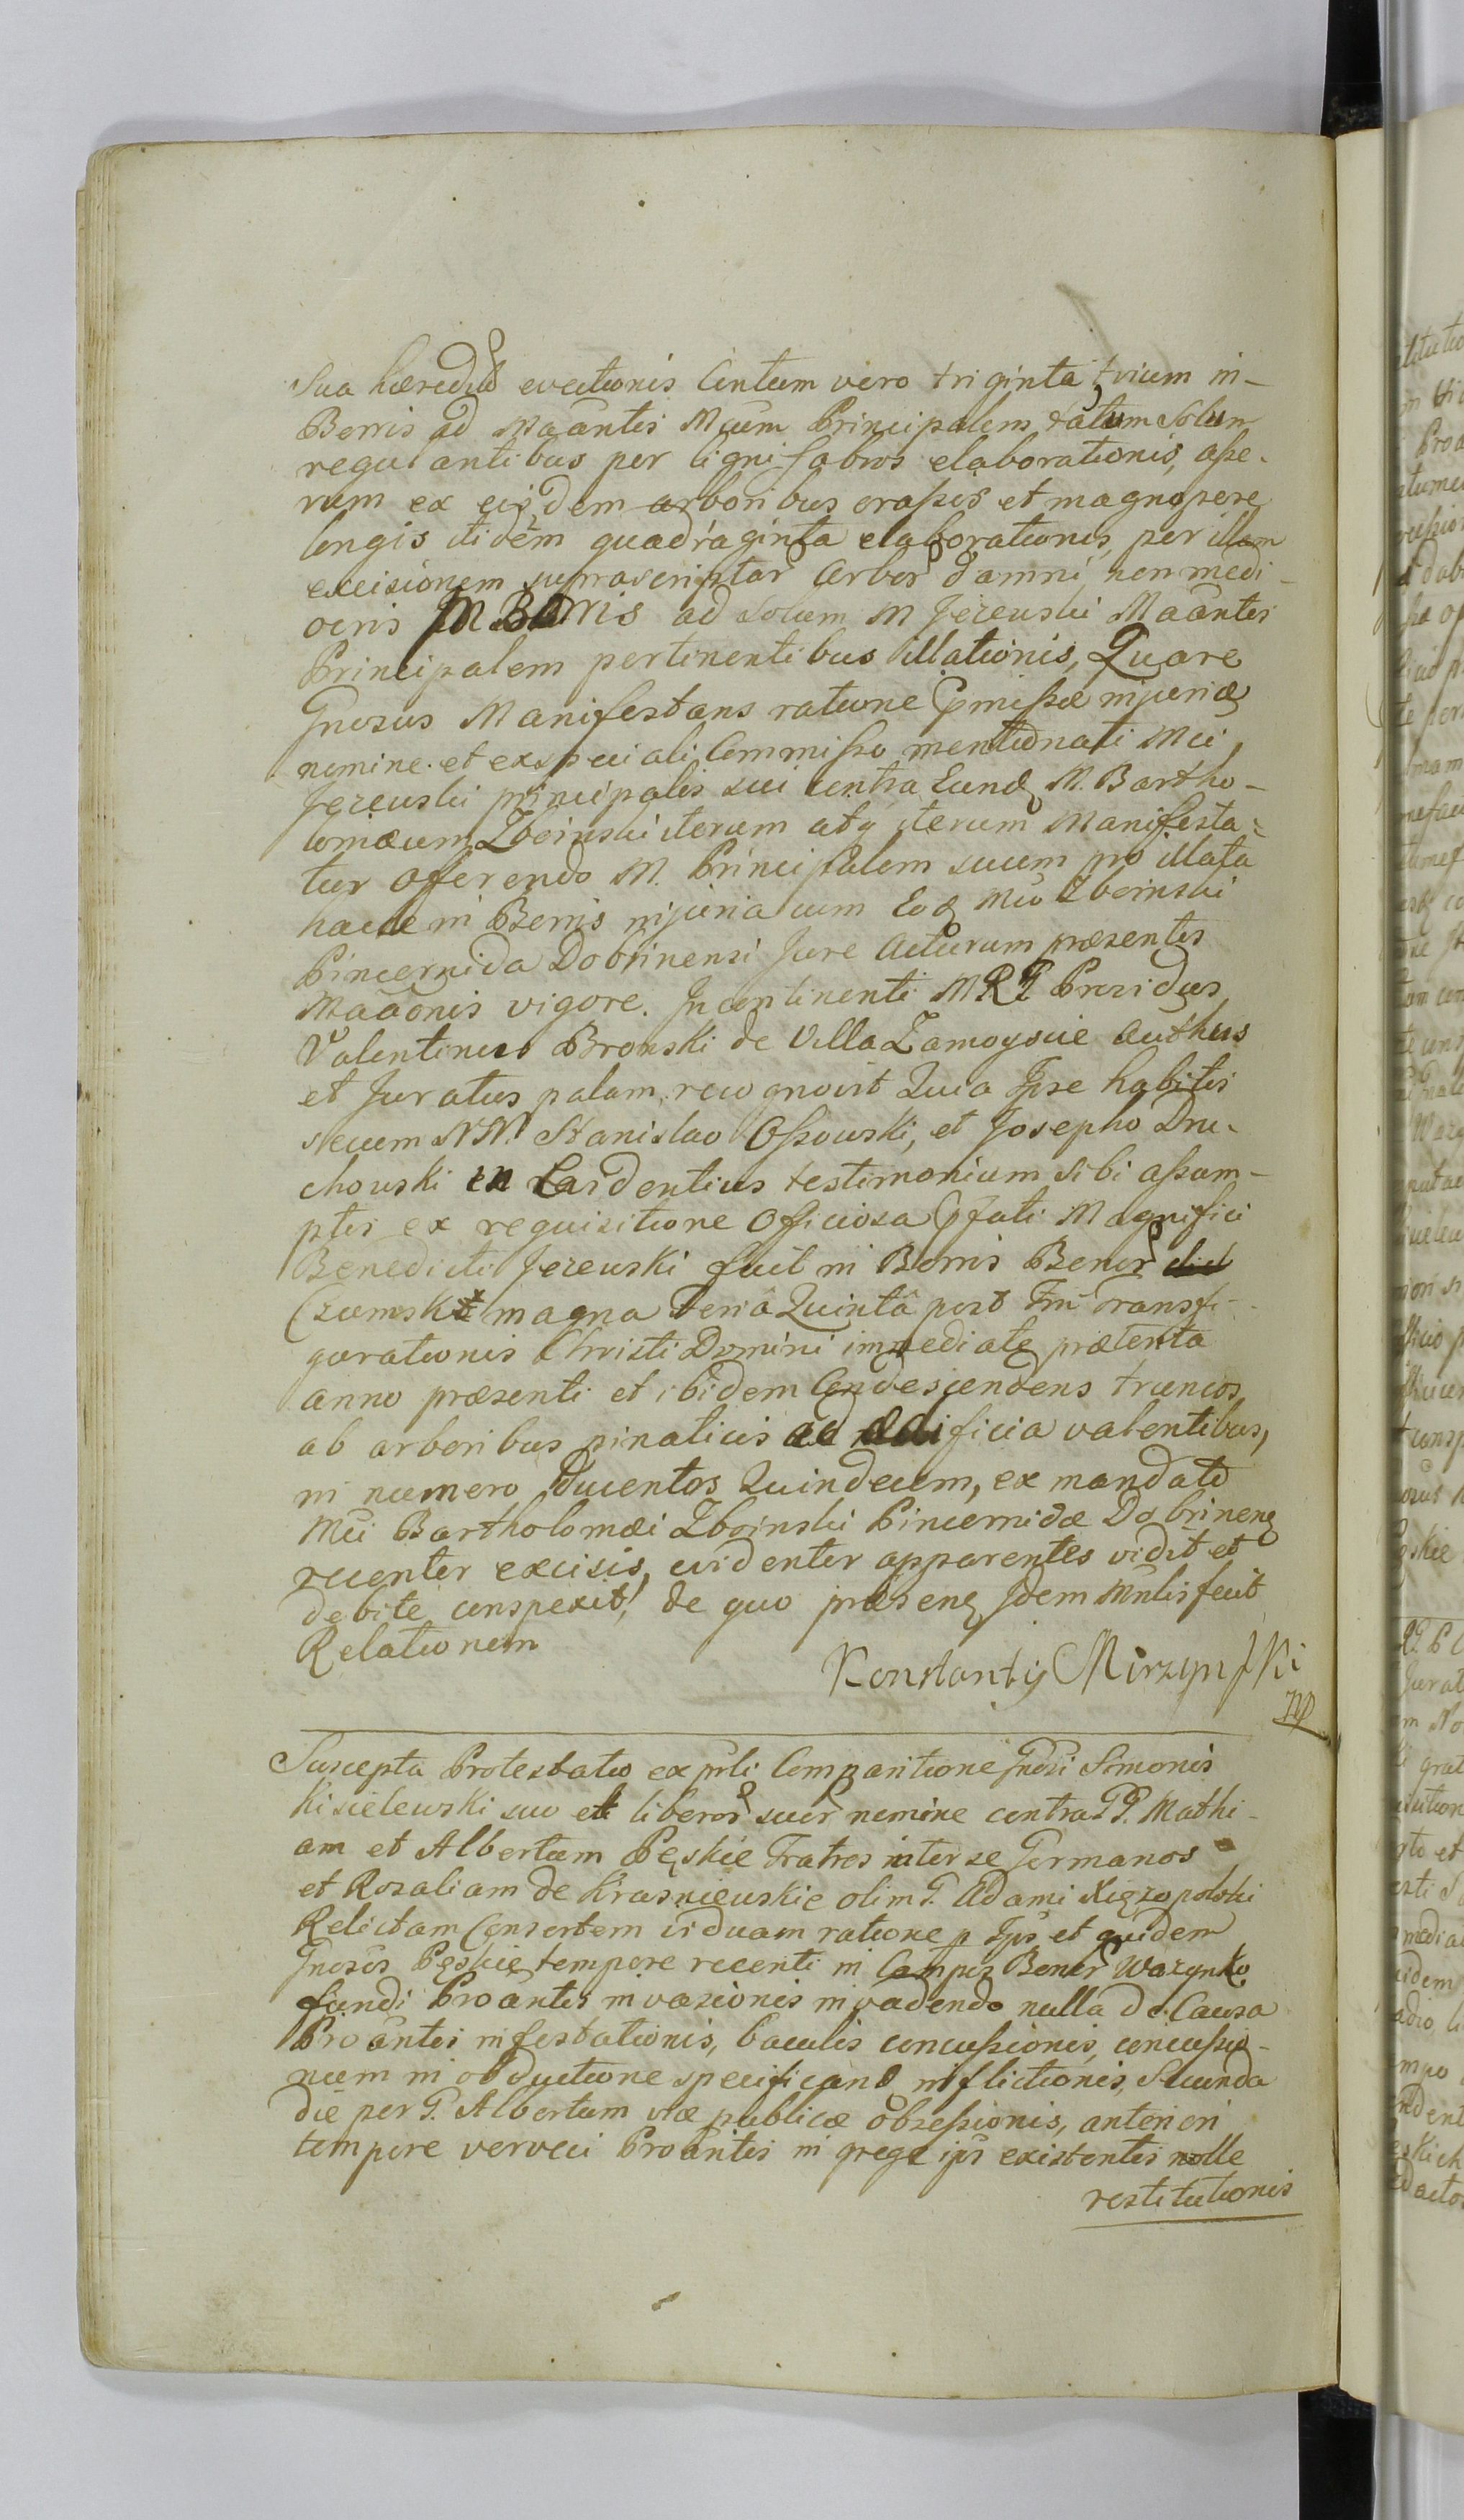 Sua hæredit evectionis Centum vero triginta trium in
Borris ad Maantis Mcum Principalem totum Solum
regulantibus per lignifabros elaborationis, asse-
rum ex eisdem arboribus crassis et magnopere
longis itidem quadraginta elaborationis, per illam
excisionem suprascriptar Arbor damni, non medi-
ocris in Borris ad Solum M Jezewski Maantis
Principalem pertinentibus illationis, Quare
Gnosus Manifestans ratione Pmissæ injuriæ
nomine et ex speciali Commisso mentionati Mci
Jezewski principalis sui contra Eund M. Bartho-
lomæum Zboinski iterum atq iterum Manifesta-
tur offerendo M. Principalem suum pro illata
hac in Borris injuria cum Eod Mco Zboinski
Pincernida Dobrinensi Jure Acturum præsentis
Maaonis vigore. Incontinenti MRP Providus
Valentinus Bronski de Villa Zamoyscie Authus
et Juratus palam recognovit Quia Ipse habitis
secum NN. Stanislao Ossowski, et Josepho Dru-
chowski in Evidentius testimonium sibi assum-
ptis ex requisitione Officiosa Pfati Magnifici
Benedicti Jezewski fuit in Borris Bonor
Czumsk magna Feria Quintâ post Ftũ Transfi-
gurationis Christi Domini immediate præterita
anno præsenti et ibidem Condescendens truncos
ab arboribus pinaticis ad ædificia valentibus,
in numero Ducentos Quindecim, ex mandato
Mci Bartholomæi Zboinski Pincernidæ Dobrinens
recenter excisis, evidenter apparentes vidit et
debite conspexit, de quo præsens Idem Mnlis fecit
Relationem
Konstanty Mirzynski
mp
Suscepta Protestatio ex prsli Comparitione Gnosi Simonis
Kisielewski suo et liberor suor nomine contra GG. Mathi-
am et Albertum Pęskie Fratres inter se Germanos
et Rozaliam de Krasniewskie olim G. Adami Xięzopolski
Relictam Consortem viduam ratione p Ipos et quidem
Gnosos Pęskie tempore recenti in Campos Bonor Wazynko
fundi Proantis invasionis invadendo nulla de Causa
Proantis infestationis, baculis concussionis, concussio-
num in obductione specificand inflictionis, Secunda
die per G. Albertum viæ publicæ obsessionis, anteriori
tempore verveci Proantis in grege ips existentis nolle
restitutionis